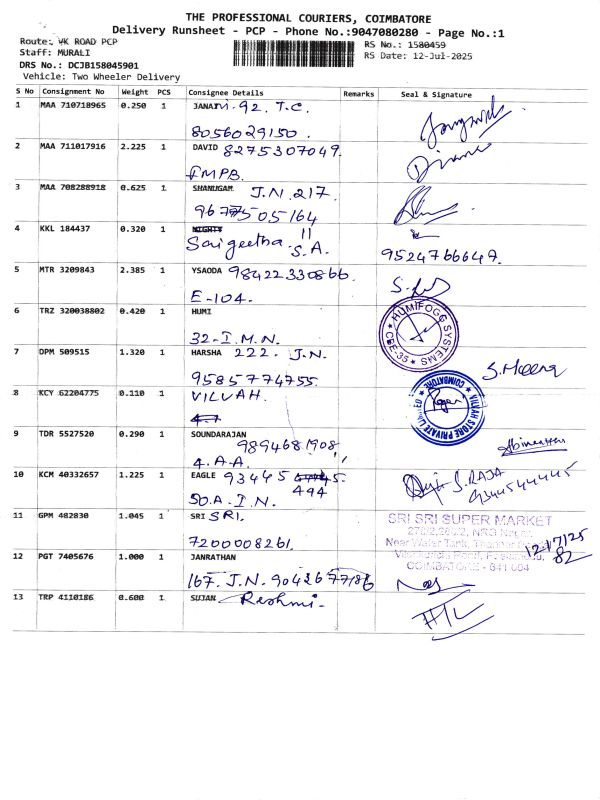 THE PROFESSIONAL COURIERS, COIMBATORE
Delivery Runsheet - PCP - Phone No.:9047080280 - Page No.:1
Route: VK ROAD PCP
Staff: MURALI
DRS No.: DCJB158045901
Vehicle: Two Wheeler Delivery
RS No.: 1580459
RS Date: 12-Jul-2025
S No Consignment No Weight PCS Consignee Details Remarks Seal & Signature
1 MAA 710718965 0.250 1 JANANI-92. T.C.
8056029150.
2 MAA 711017916 2.225 1 DAVID 8275307049.
FMPB.
3 MAA 708288918 0.625 1 SHANUGAM J.N.217.
505164
4 KKL 184437 0.320 1
Saigeetha. S.A. 9524766647.
5 MTR 3209843 2.385 1 YSAODA 98422330866.
E-104.
6 TRZ 320038802 0.420 1 HUMI
32-I.M.N.
HUMIFOGG SYSTEMS
CBE-35
7 DPM 509515 1.320 1 HARSHA 222. J.N.
9585774755. S.Meena
8 KCY 62204775 0.110 1 VILVAH.
4.7
VILVAH STORE PRIVATE LIMITED
COIMBATORE
9 TDR 5527520 0.290 1 SOUNDARAJAN
9894681908,
4.A.A.
10 KCM 40332657 1.225 1 EAGLE 93445 45.
494
50.A.I.N.
S.RAJA
9344544445
11 GPM 482830 1.045 1 SRI SRI.
7200008261.
SRI SRI SUPER MARKET
Near Water Tank,
COIMBATORE - 641 004
12/7/25
82
12 PGT 7405676 1.000 1 JANRATHAN
167. J.N. 9042677186
13 TRP 4110186 0.600 1 SUJAN Reshmi.